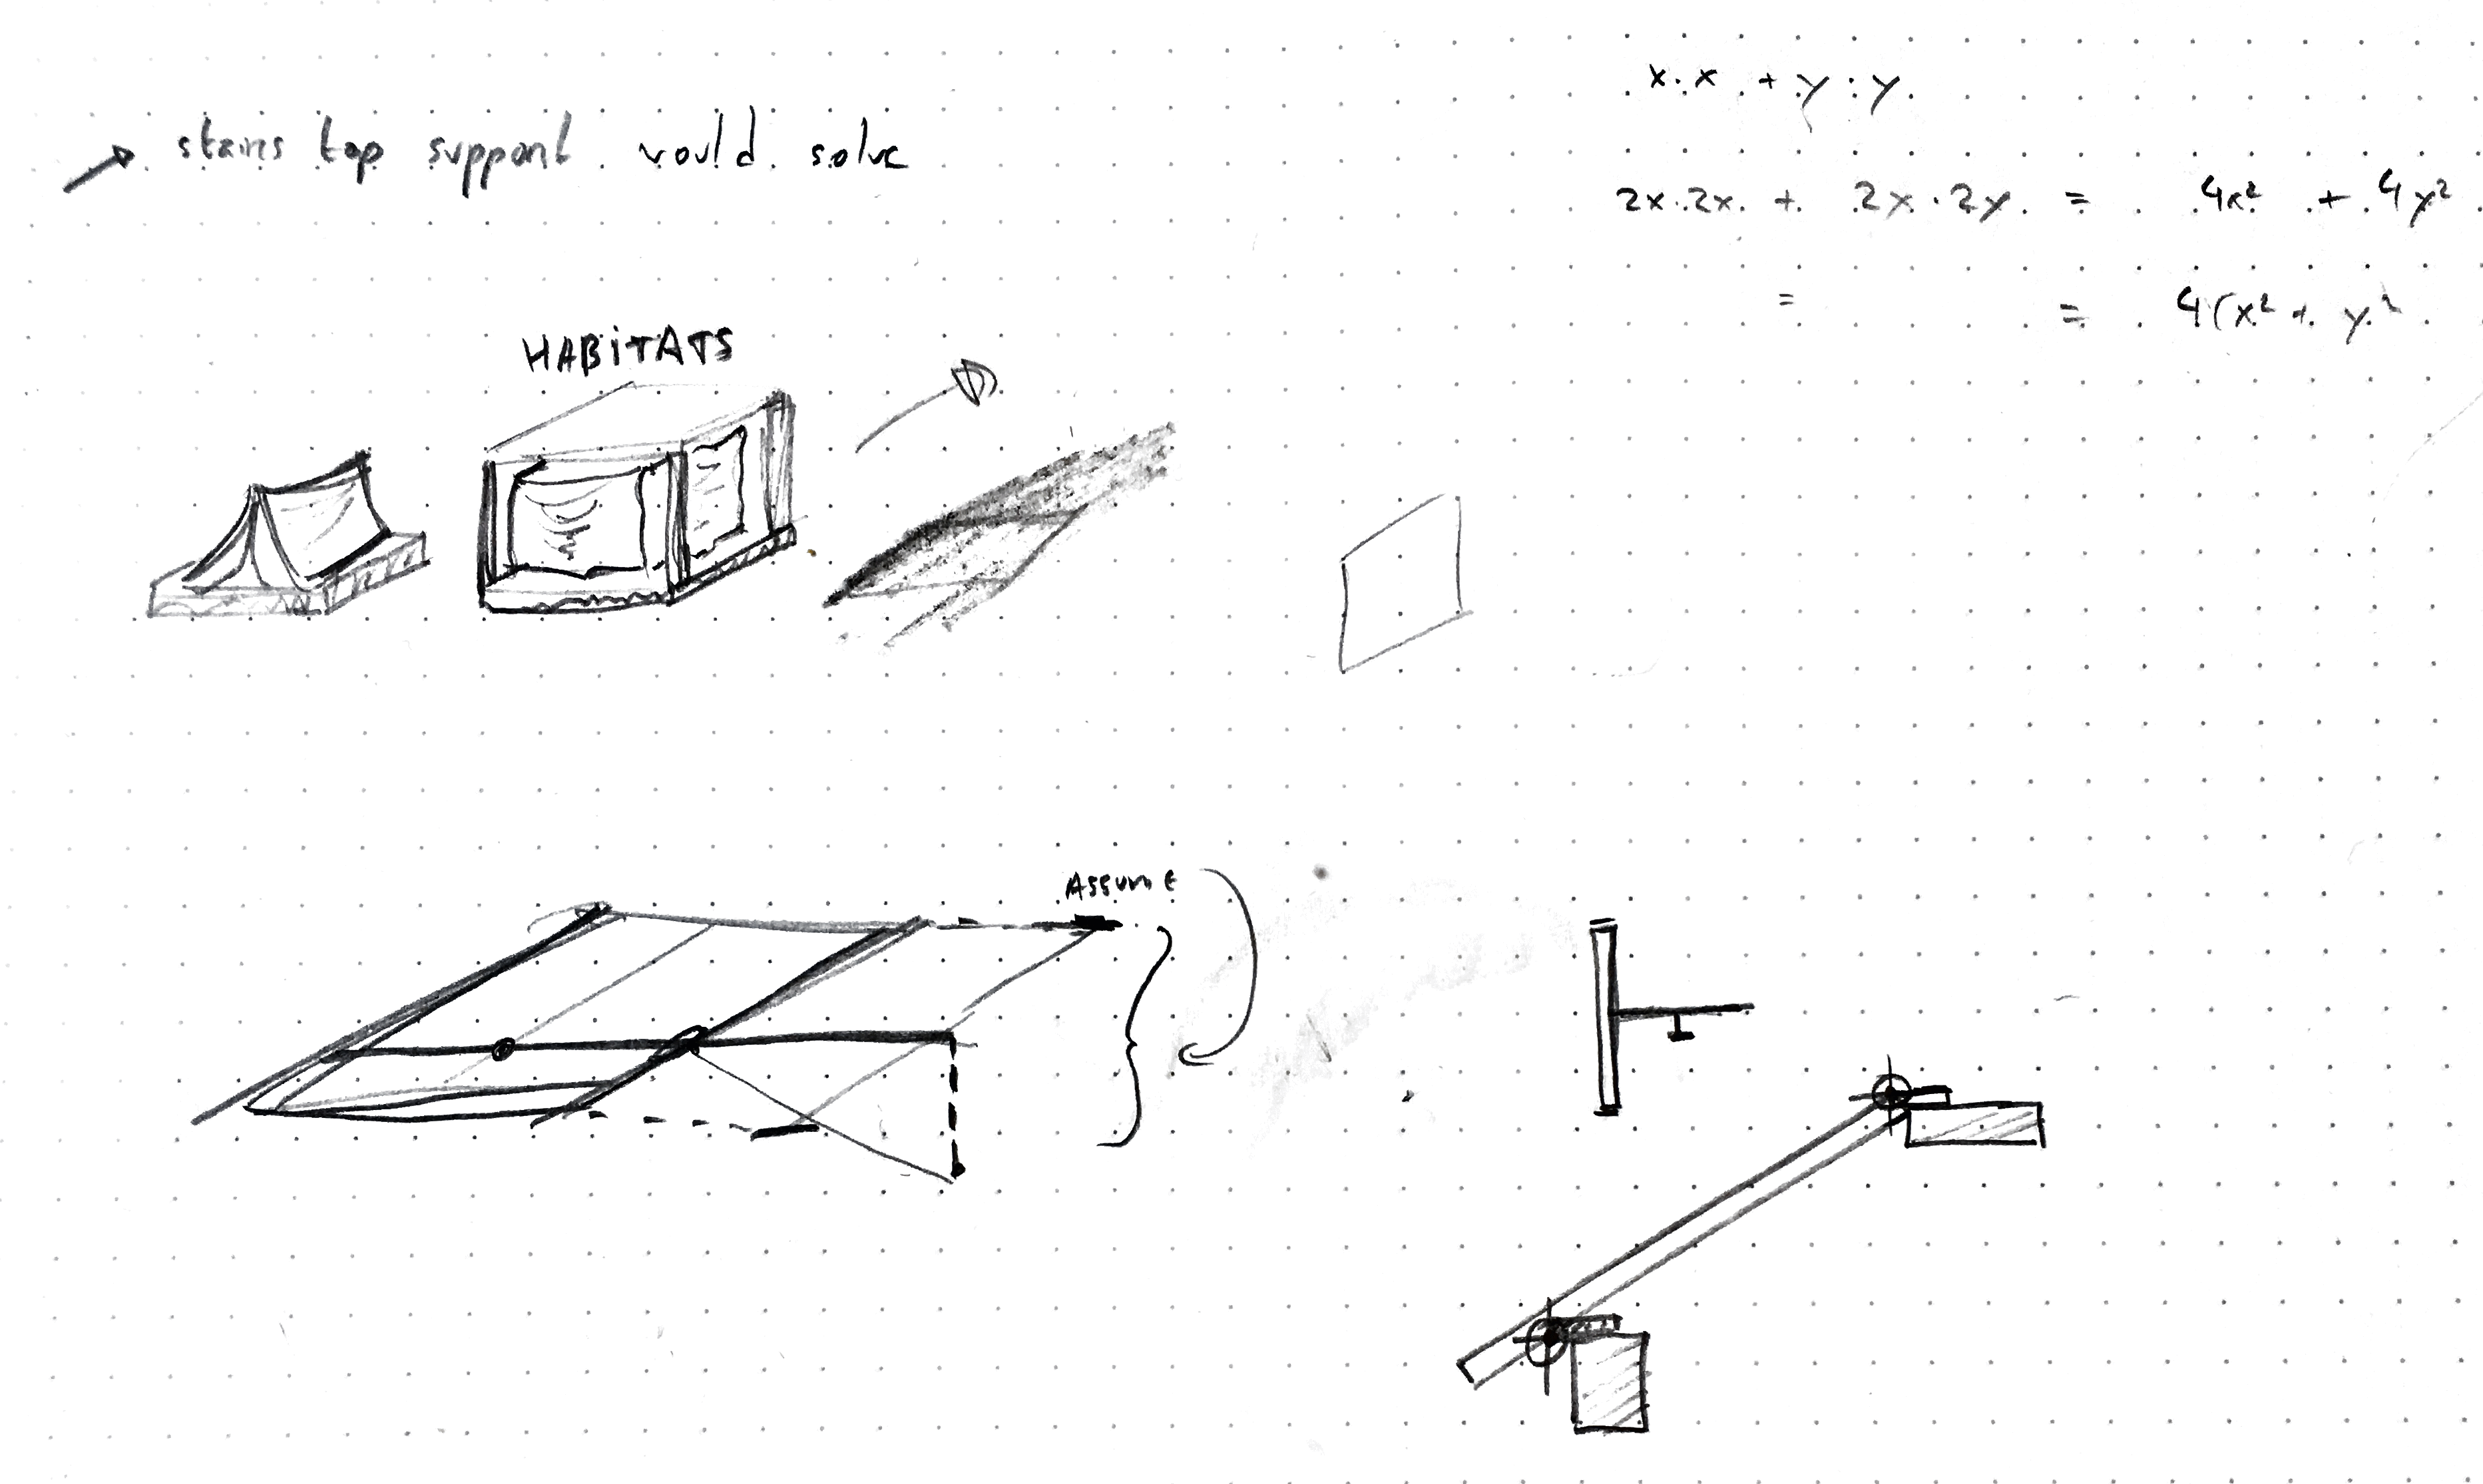 stairs top support would solve
x·x + y·y
2x·2x + 2x·2y = 4x² + 4y²
= = 4(x² + y²
HABiTATS
Assume